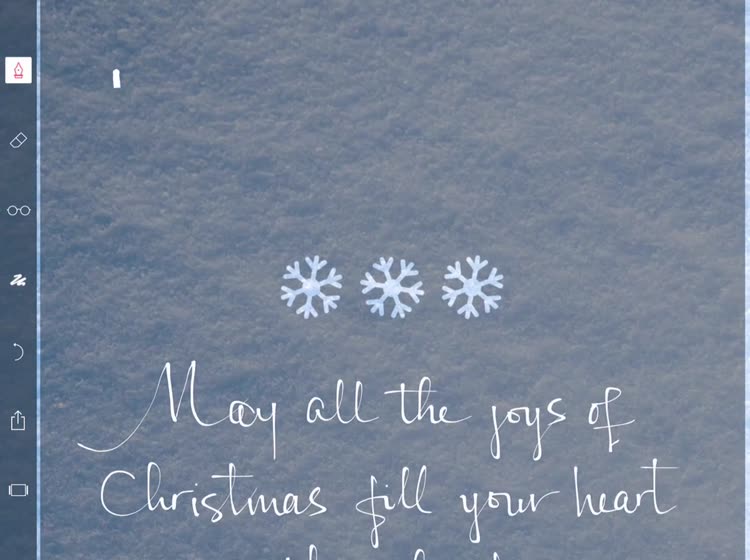 May all the joys of
Christmas fill your heart